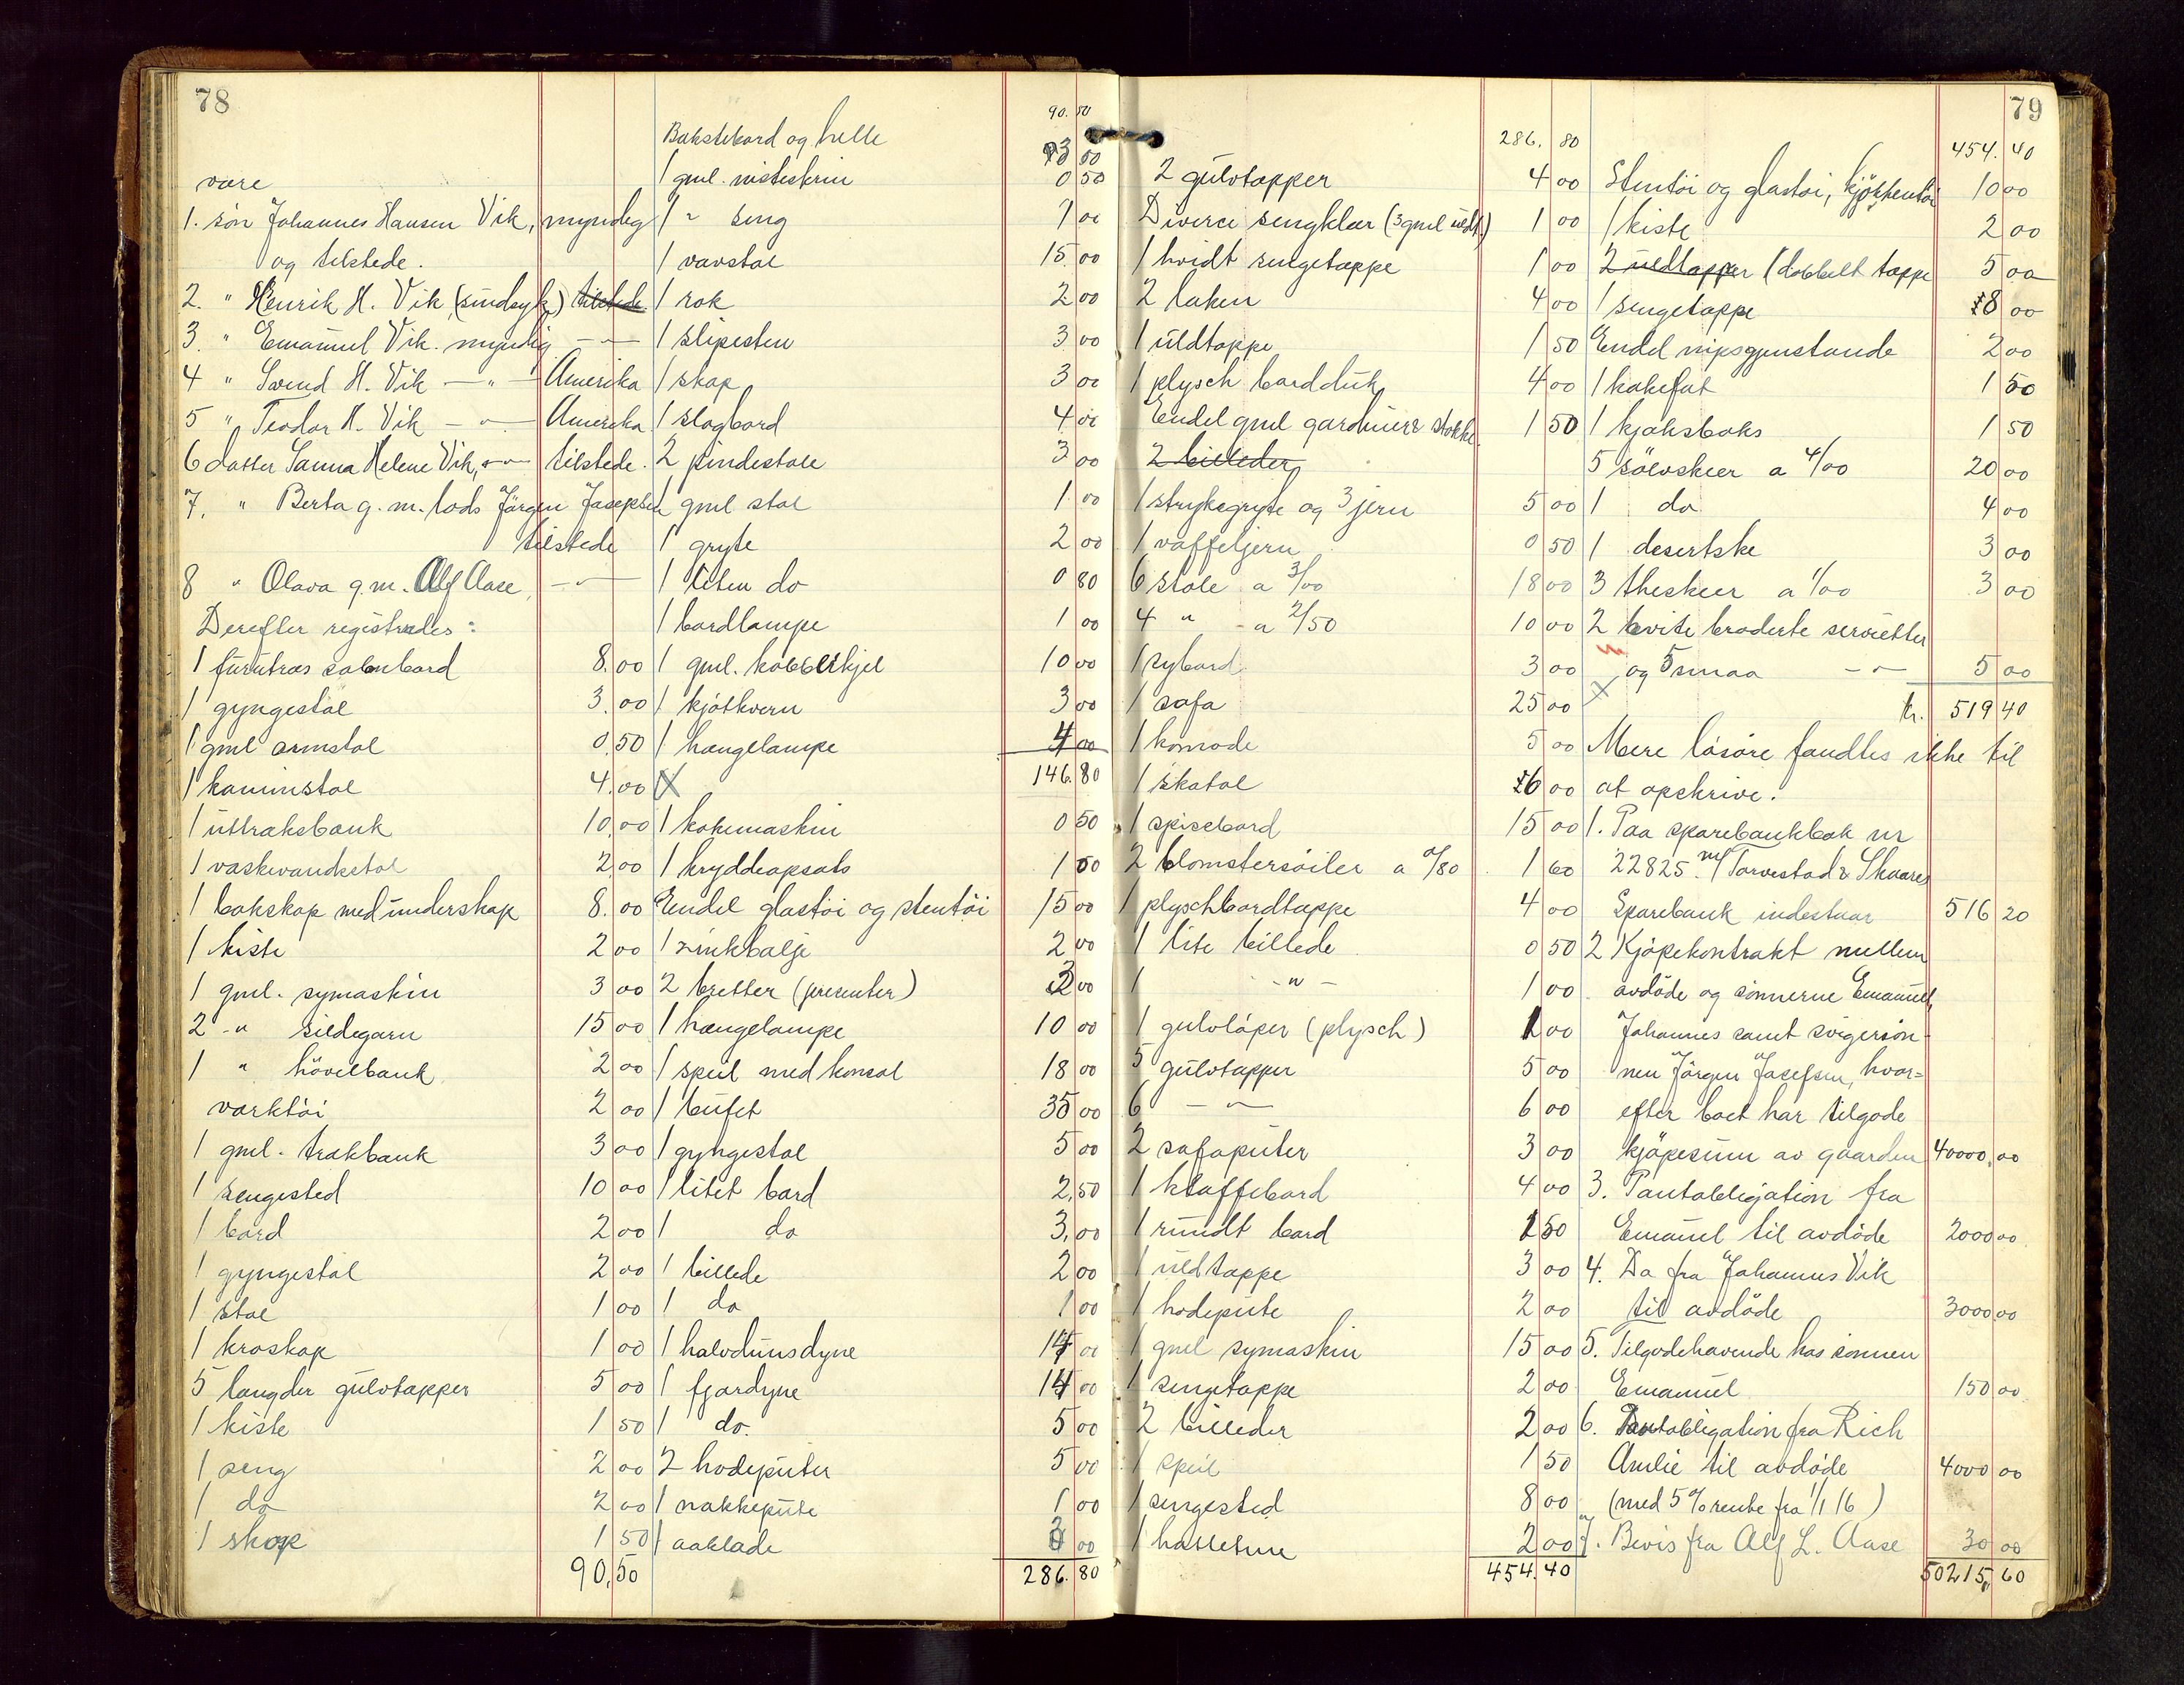 78
være
1. søn Johannes Hansen Vik, myndig
og tilstede.
2. " Henrik H. Vik (sindsyk) tilstede
3. " Emanuel Vik. myndig — " —
4 " Svend H. Vik — " — Amerika
5 " Teodor H. Vik — " — Amerika
6 datter Sanna Helene Vik, — " — tilstede.
7. " Berta g. m. lods Jørgen Josephsen
tilstede
8 " Olava g. m. Alf Aase, — " —
Derefter registredes:
1 furutræs salonbord 8.00
1 gyngestol 3.00
1 gml armstol 0.50
1 kaminstol 4.00
1 uttræksbænk 10.00
1 vaskevandsstol 2.00
1 bokskap med underskap 8.00
1 kiste 2 00
1 gml. symaskin 3 00
2 - " sildegarn 15 00
1 " høvelbænk 2 00
verktøi 2 00
1 gml. trækbænk 3 00
1 sengested 10 00
1 bord 2 00
1 gyngestol 2 00
1 stol 1 00
1 kroskap 1 00
5 længder gulvtæpper 5 00
1 kiste 1 50
1 seng 2 00
1 do 2 00
1 skap 1 50
90,50
90.50
Bakstebord og helle 3 00
1 gml. nisteskrin 0 50
1 " seng 1 00
1 vævstol 15 00
1 rok 2 00
1 slipesten 3 00
1 skap 3 00
1 slagbord 4 00
2 pindestole 3 00
1 gml stol 1 00
1 gryte 2 00
1 liten do 0 80
1 bordlampe 1 00
1 gml. kobberkjel 10 00
1 kjøtkvern 3 00
1 hængelampe 4 00
146.80
1 kokemaskin 0 50
1 kryddeopsats 1 50
Endel glastøi og stentøi 15 00
1 zinkbalje 2 00
2 bretter (presenter) 2 00
1 hængelampe 10 00
1 speil med konsol 18 00
1 bufet 35 00
1 gyngestol 5 00
1 litet bord 2,50
1 do 3,00
1 billede 2 00
1 do 1 00
1 halvdunsdyne 14 00
1 fjærdyne 14 00
1 do. 5 00
2 hodeputer 5 00
1 nakkepute 1 00
1 aaklæde 3 00
286.80
286.80
2 gulvtæpper 4 00
Diverse sengklær (3 gml uldt.) 1 00
1 hvidt sengetæppe 1 00
2 laken 4 00
1 uldtæppe 1 50
1 plysch bordduk 4 00
Endel gml gardiner & stokke 1 50
2 billeder
1 strykegryte og 3 jern 5 00
1 vaffeljern 0 50
6 stole a 3/00 18 00
4 " - a 2/50 10 00
1 sybord 3 00
1 sofa 25 00
1 komode 5 00
1 skatol 6 00
1 spisebord 15 00
2 blomstersøiler a 0/80 1 60
1 plyschbordtæppe 4 00
1 lite billede 0 50
1 - " - 1 00
1 gulvløper (plysch) 1 00
5 gulvtæpper 5 00
6 — " — 6 00
2 sofaputer 3 00
1 klaffebord 4 00
1 rundt bord 1 50
1 uldtæppe 3 00
1 hodepute 2 00
1 gml symaskin 15 00
1 sengetæppe 2 00
2 billeder 2 00
1 speil 1 50
1 sengested 8 00
1 hallelure 2 00
454.40
79
454.40
Stentøi og glastøi, kjøkkentøi 10 00
1 kiste 2 00
2 uldtæpper 1 dobbelt tæppe 5 00
1 sengetæppe 8 00
Endel nipsgjenstande 2 00
1 kakefat 1 50
1 kjæksboks 1 50
5 sølvskeer a 4/00 20 00
1 do 4 00
1 desertske 3 00
3 theskeer a 1/00 3 00
2 hvite broderte servietter
og 5 smaa — " — 5 00
kr. 519 40
Mere løsøre fandtes ikke til
at opskrive.
1. Paa sparebankbok nr
22825 m/ Torvestad & Skaare
Sparebank indestaar 516 20
2 Kjøpekontrakt mellem
avdøde og sønnerne Emanuel,
Johannes samt svigersøn-
nen Jørgen Josefsen, hvor=
efter boet har tilgode
kjøpesum av gaarden 40000,00
3. Pantobligation fra
Emanuel til avdøde 2000 00
4. Do fra Johannes Vik
til avdøde 3000 00
5. Tilgodehavende hos sønnen
Emanuel 150 00
6. Pantobligation fra Rich
Amlie til avdøde 4000 00
(med 5 % rente fra 1/1 16)
7. Bevis fra Alf L. Aase 30 00
50215,60